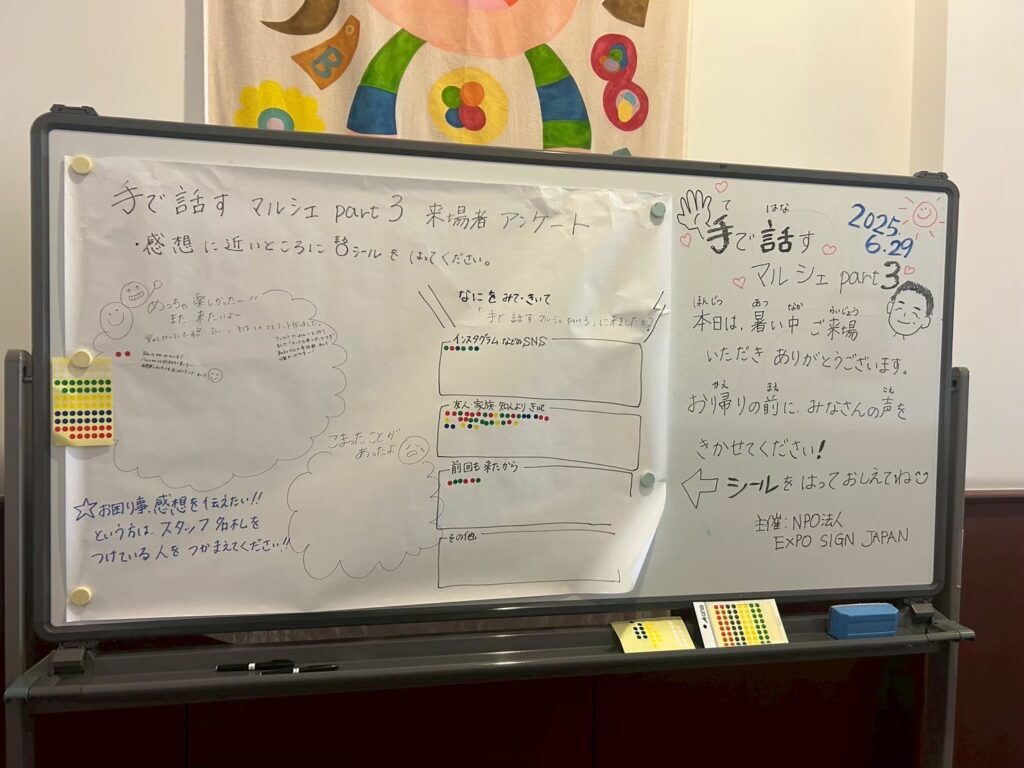 手で話す マルシェ part 3 来場者 アンケート
・感想 に近いところに シールを はってください。
めっちゃ 楽しかったー!!
また 来たいよー
なにを みて・きいて
「手で話すマルシェpart3」に来ましたか?
インスタグラム などの SNS
友人・家族・知人より きいて
前回も 来たから
その他
こまったことが
あったよ
☆お困り事、感想を伝えたい!!
という方は、スタッフ名札を
つけている人を つかまえてください!!
2025.
6.29
て はな
手で話す
マルシェ part3
ほんじつ あつ なか らいじょう
本日は、暑い中 ご来場
いただき ありがとうございます。
かえ まえ こえ
お帰りの前に、みなさんの声を
きかせてください!
シールを はって おしえてね
主催:NPO法人
EXPO SIGN JAPAN
B